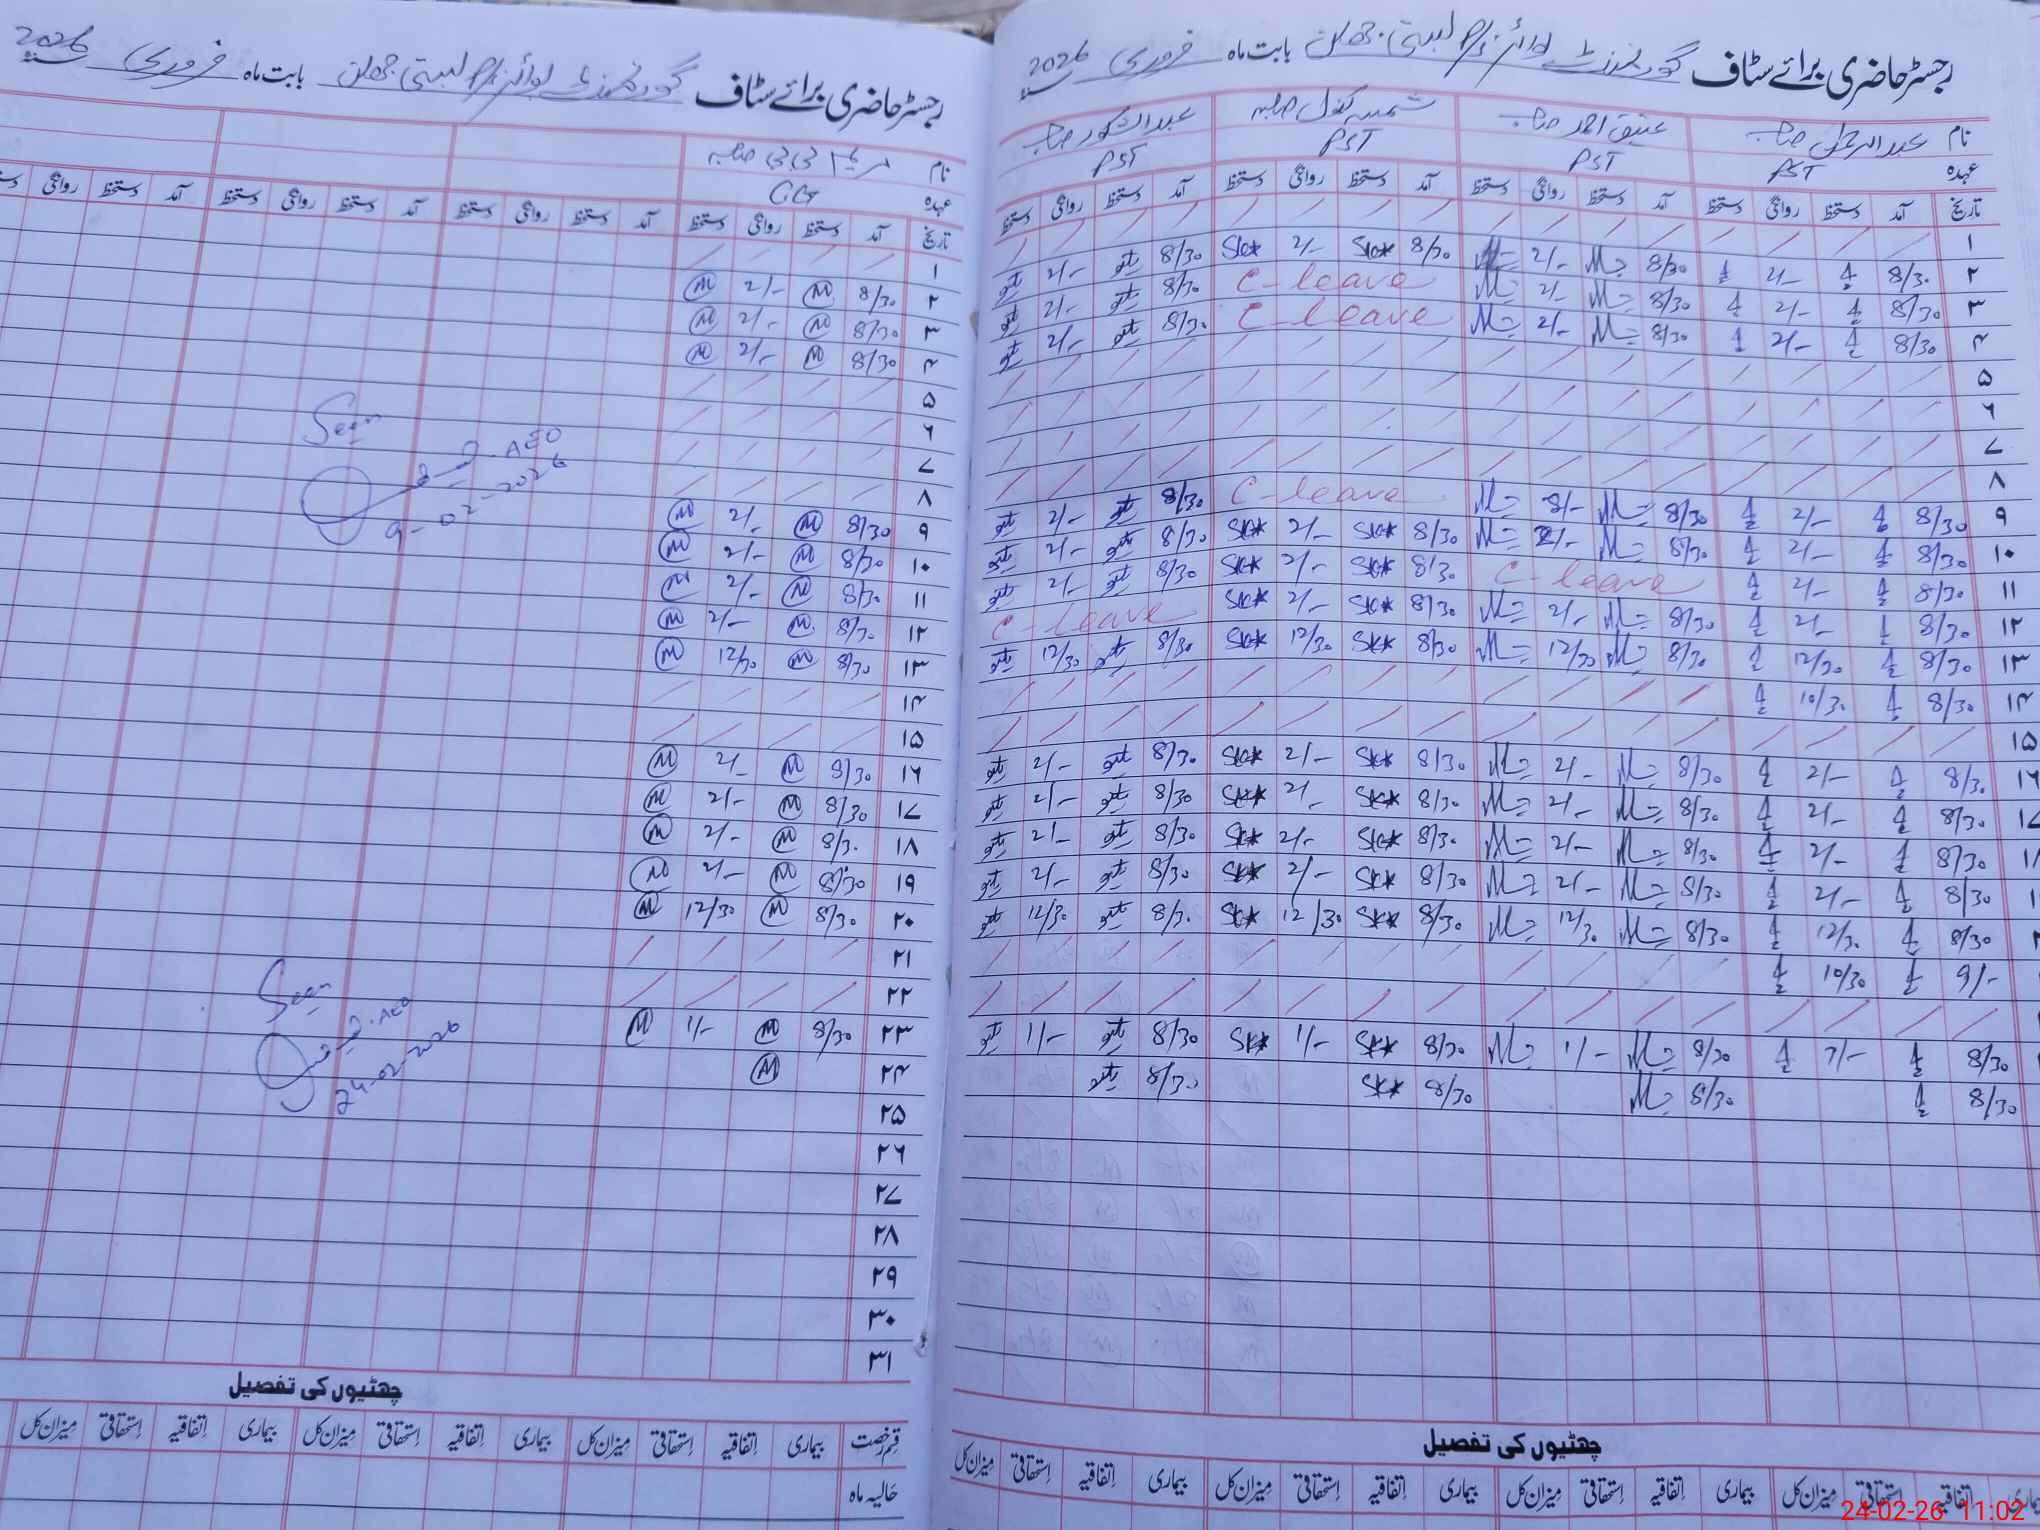 رجسٹر حاضری برائے سٹاف گورنمنٹ بوائز P/S بستی جھلن بابت ماہ فروری 2026
نام عبدالرحمٰن صاحب عتیق احمد صاحب شمسہ کنول صاحبہ عبدالشکور صاحب
عہدہ PST PST PST PST
تاریخ آمد دستخط روانگی دستخط آمد دستخط روانگی دستخط آمد دستخط روانگی دستخط آمد دستخط روانگی دستخط
۱
۲ 8/30 2/- 8/30 2/- 8/30 2/- 8/30 2/-
۳ 8/30 2/- 8/30 2/- C-leave 8/30 2/-
۴ 8/30 2/- 8/30 2/- C-leave 8/30 2/-
۵
۶
۷
۸
۹ 8/30 2/- 8/30 8/- C-leave 8/30 2/-
۱۰ 8/30 2/- 8/30 2/- 8/30 2/- 8/30 2/-
۱۱ 8/30 2/- C-leave 8/30 2/- 8/30 2/-
۱۲ 8/30 2/- 8/30 2/- 8/30 2/- C-leave
۱۳ 8/30 12/30 8/30 12/30 8/30 12/30 8/30 12/30
۱۴ 8/30 10/30
۱۵
۱۶ 8/30 2/- 8/30 2/- 8/30 2/- 8/30 2/-
8/30 2/- 8/30 2/- 8/30 2/- 8/30 2/-
8/30 2/- 8/30 2/- 8/30 2/- 8/30 2/-
8/30 2/- 8/30 2/- 8/30 2/- 8/30 2/-
8/30 12/30 8/30 12/30 8/30 12/30 8/30 12/30
9/- 10/30
8/30 8/30 1/- 8/30 1/- 8/30 1/-
8/30 8/30 8/30 8/30
چھٹیوں کی تفصیل
بیماری اِتفاقیہ اِستحقاقی میزان کل بیماری اِتفاقیہ اِستحقاقی میزان کل بیماری اِتفاقیہ اِستحقاقی میزان کل بیماری اِتفاقیہ اِستحقاقی میزان کل
رجسٹر حاضری برائے سٹاف گورنمنٹ بوائز P/S بستی جھلن بابت ماہ فروری 2026
نام مریم بی بی صاحبہ
عہدہ
تاریخ آمد دستخط روانگی دستخط آمد دستخط روانگی دستخط آمد دستخط روانگی دستخط آمد دستخط روانگی
۱
۲ 8/30 M 2/- M
۳ 8/30 M 2/- M
۴ 8/30 M 2/- M
۵
۶
۷
۸
۹ 8/30 M 2/- M
۱۰ 8/30 M 2/- M
۱۱ 8/30 M 2/- M
۱۲ 8/30 M 2/- M
۱۳ 8/30 M 12/30 M
۱۴
۱۵
۱۶ 8/30 M 2/- M
۱۷ 8/30 M 2/- M
۱۸ 8/30 M 2/- M
۱۹ 8/30 M 2/- M
۲۰ 8/30 M 12/30 M
۲۱
۲۲
۲۳ 8/30 M 1/- M
۲۴ M
۲۵
۲۶
۲۷
۲۸
۲۹
۳۰
۳۱
Seen
AEO
9-02-2026
Seen
AEO
24-02-2026
چھٹیوں کی تفصیل
قسم رخصت بیماری اِتفاقیہ اِستحقاقی میزان کل بیماری اِتفاقیہ اِستحقاقی میزان کل بیماری اِتفاقیہ اِستحقاقی میزان کل
حالیہ ماہ
24-02-26 11:02